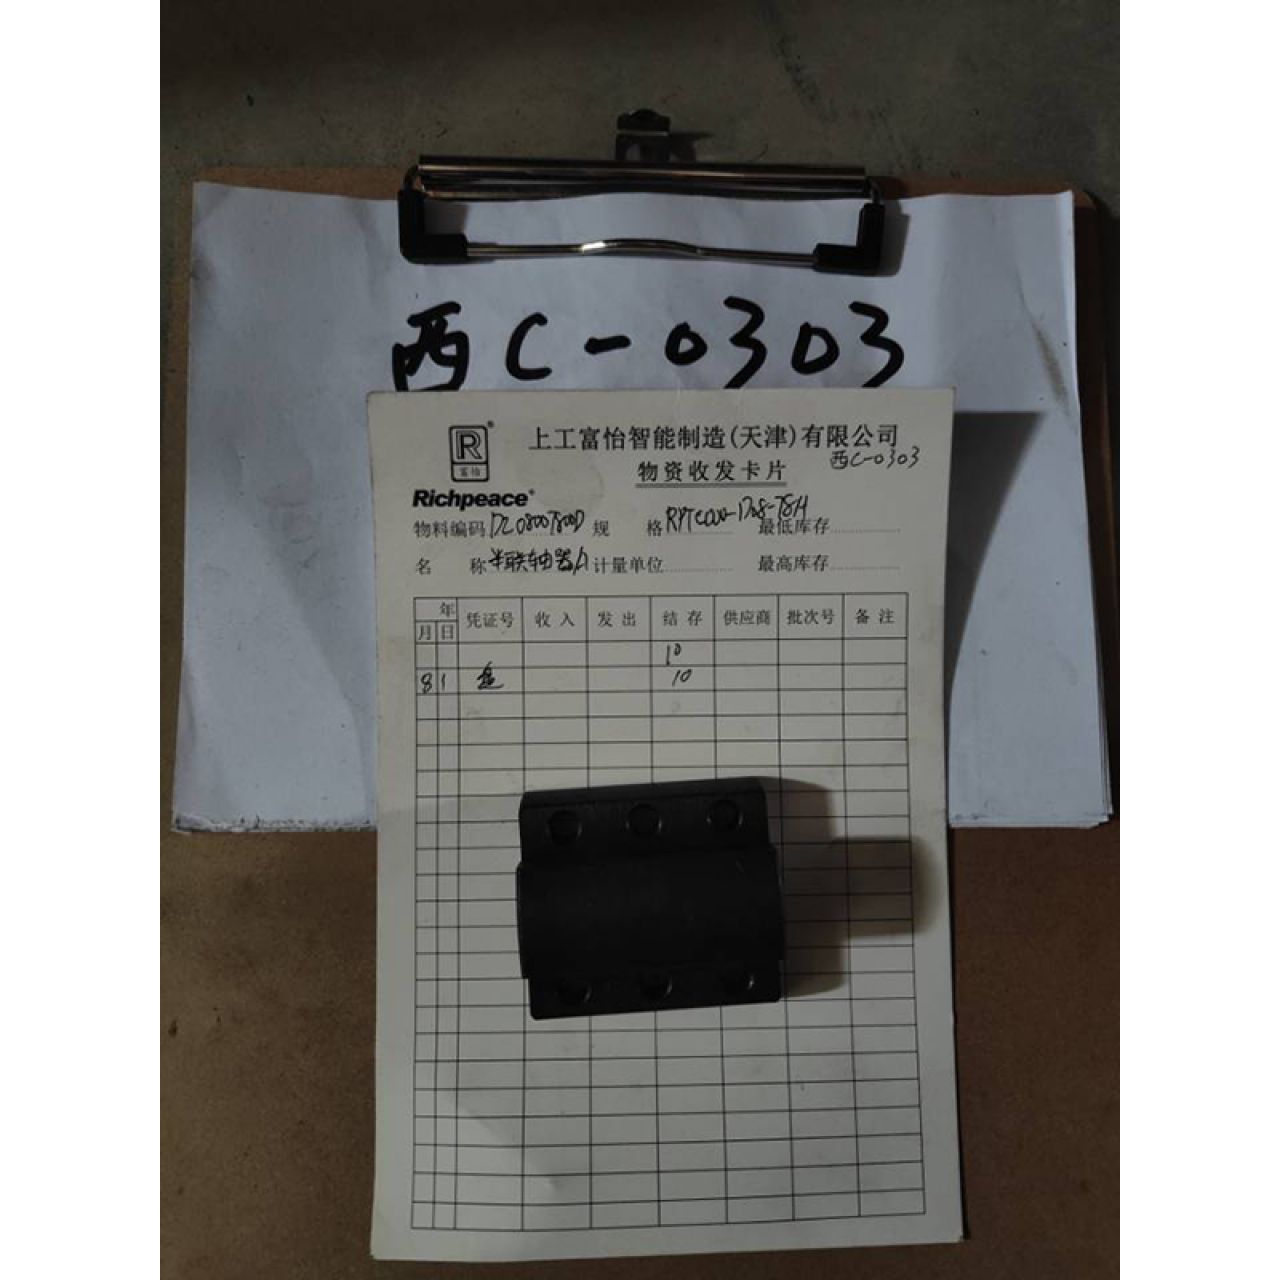 西C-0303
R
富怡
®
上工富怡智能制造(天津)有限公司
西C-0303
物资收发卡片
Richpeace®
物料编码 规格 最低库存
名称 半联轴器A 计量单位 最高库存
年
月 日 凭证号 收入 发出 结存 供应商 批次号 备注
10
8 1 盘 10